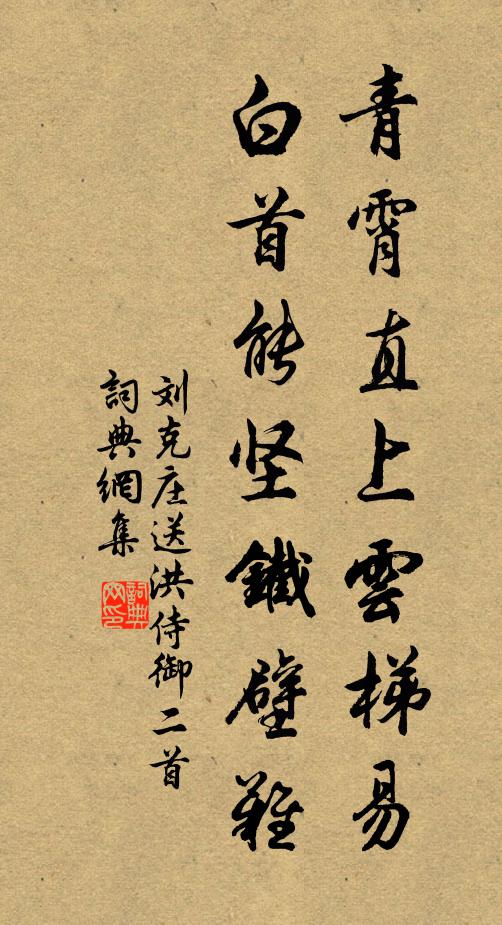 青霄直上雲梯易
白首能坚鐵壁難
刘克庄送洪侍御二首
詞典網集
詞典網印